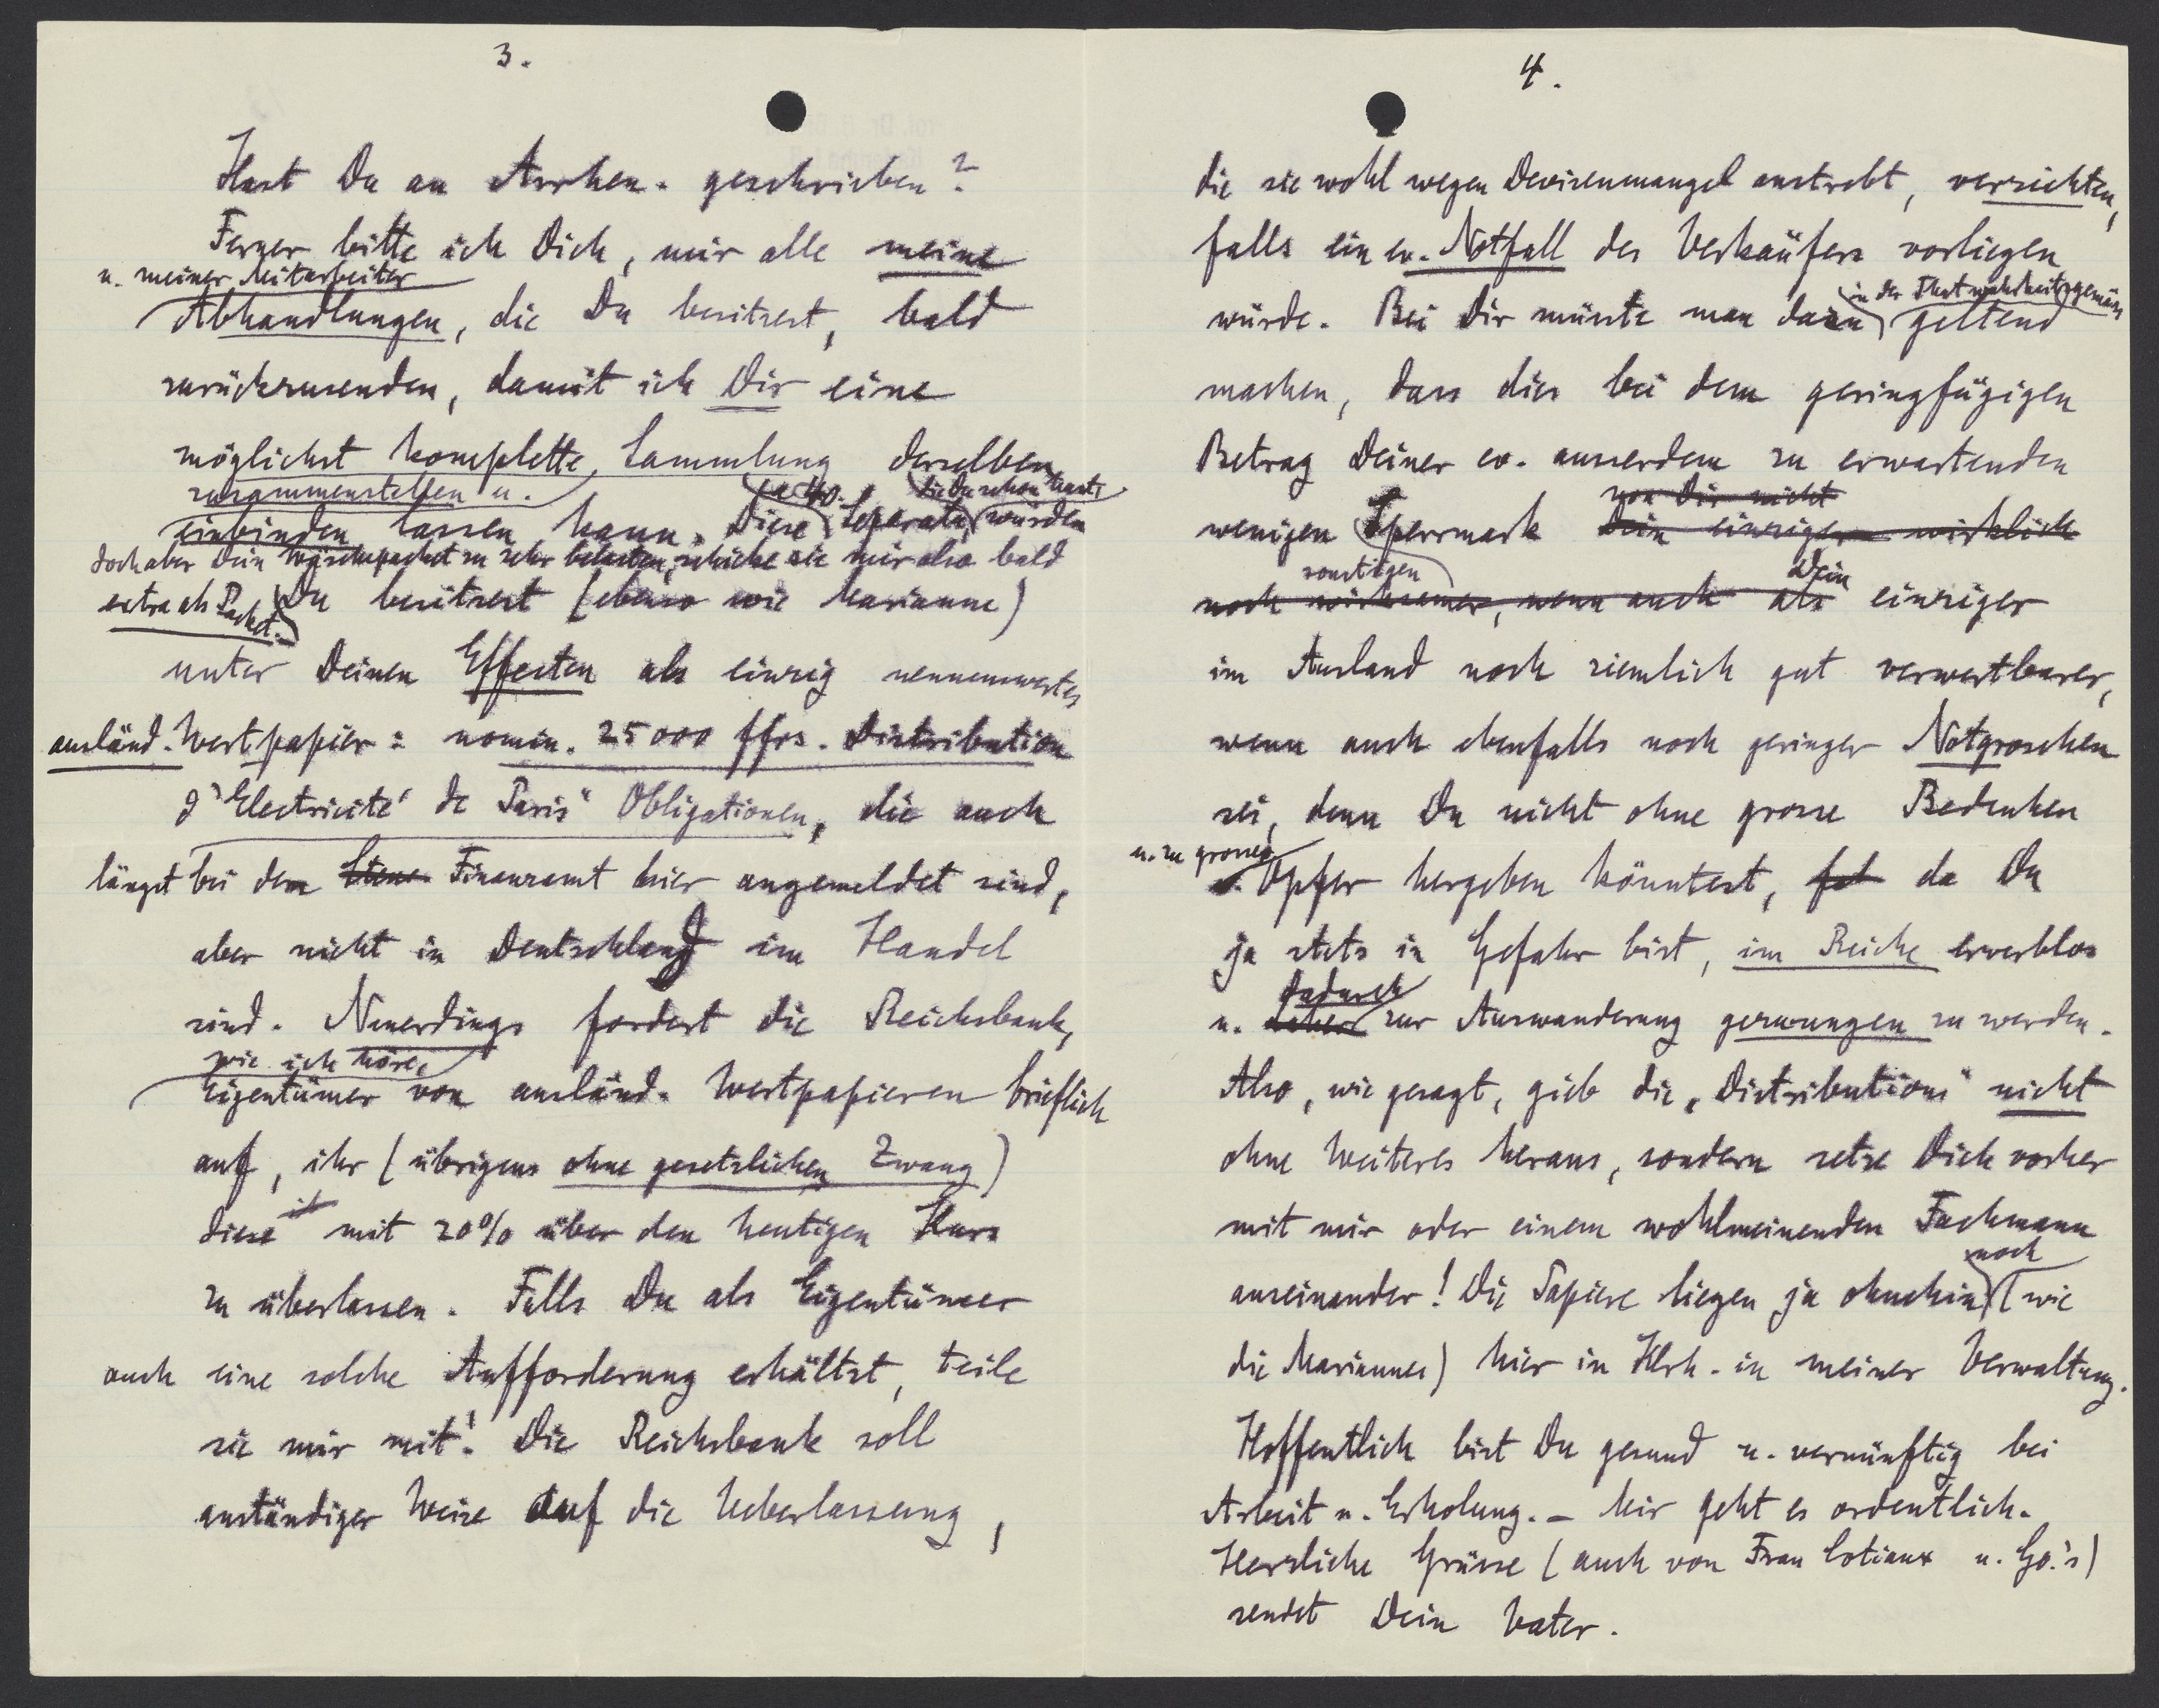 3.
Hast Du an Arrhen. geschrieben?
Ferner bitte ich Dich, mir alle meine
u. meiner Mitarbeiter
Abhandlungen, die Du besitzest, bald
zurückzusenden, damit ich Dir eine
möglichst komplette Sammlung derselben
zusammenstellen u.
einbinden lassen kann. Diese Separata, die Du schon hast, würden
doch aber Dein Wäschepacket zu sehr belasten, schicke sie mir also bald
extra als Packet.
Du besitzest (ebenso wie Marianne)
unter Deinen Effecten als einzig nennenswertes
ausländ. Wertpapier: nomin. 25000 ffrs. Distribution
d'Electricité de Paris" Obligationen, die auch
längst bei dem Finanzamt hier angemeldet sind,
aber nicht in Deutschland im Handel
sind. Neuerdings fordert die Reichsbank,
wie ich höre,
Eigentümer von ausländ. Wertpapieren brieflich
auf, ihr (übrigens ohne gesetzlichen Zwang)
diese mit 20% über den heutigen Kurs
zu überlassen. Falls Du als Eigentümer
auch eine solche Aufforderung erhältst, teile
sie mir mit! Die Reichsbank soll
anständiger Weise auf die Ueberlassung,
4.
die sie wohl wegen Devisenmangel anstrebt, verzichten,
falls ein ev. Notfall des Verkäufers vorliegen
in der That wahrheitsgemäss
würde. Bei Dir müsste man dazu geltend
machen, dass dies bei dem geringfügigen
Betrag Deiner ev. ausserdem zu erwartenden
von Dir nicht
wenigen Sperrmark Dein einziger wirklich
sonstigen Dein
noch wirksamer, wenn auch als einziger
im Ausland noch ziemlich gut verwertbarer,
wenn auch ebenfalls noch geringer Notgroschen
sei, denn Du nicht ohne grosse Bedenken
u. zu grosse
Opfer hergeben könntest, da Du
ja stets in Gefahr bist, im Reiche erwerblos
dadurch
u. daher zur Auswanderung gezwungen zu werden.
Also, wie gesagt, gieb die „Distributions" nicht
ohne Weiteres heraus, sondern setze Dich vorher
mit mir oder einem wohlmeinenden Fachmann
noch
auseinander! Die Papiere liegen ja ohnehin (wie
die Mariannes) hier in Klrh. in meiner Verwaltung.
Hoffentlich bist Du gesund u. vernünftig bei
Arbeit u. Erholung. – Mir geht es ordentlich.
Herzliche Grüsse (auch von Frau Cotiaux u. Go.'s)
sendet Dein Vater.